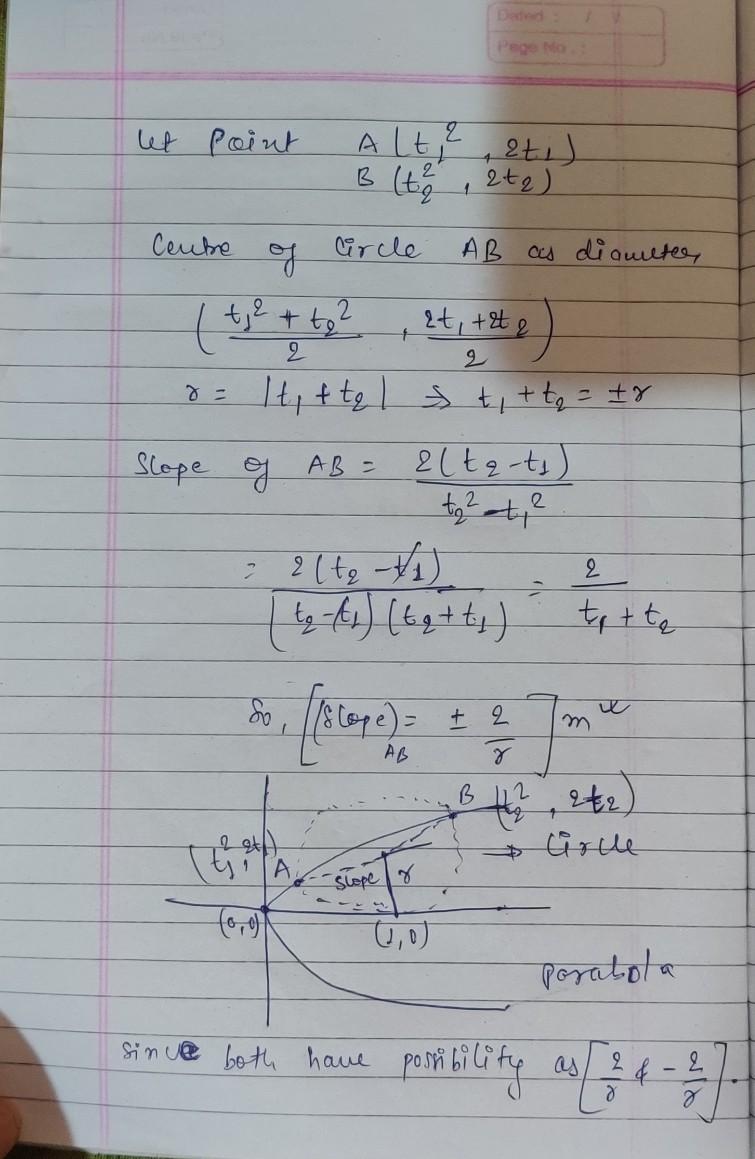 Dated : / /
Page No. :
let Point A (t₁², 2t₁)
B (t₂², 2t₂)
Centre of Circle AB as diameter
( (t₁² + t₂²)/2 , (2t₁ + 2t₂)/2 )
r = |t₁ + t₂| ⇒ t₁ + t₂ = ±r
Slope of AB = 2(t₂ - t₁)/(t₂² - t₁²)
= 2(t₂ - t₁)/((t₂ - t₁)(t₂ + t₁)) = 2/(t₁ + t₂)
So, [(Slope)AB = ± 2/r]
B (t₂², 2t₂)
(t₁², 2t₁) A
→ Circle
slope r
(0,0) (1,0)
parabola
Since both have possibility as [2/r & -2/r].